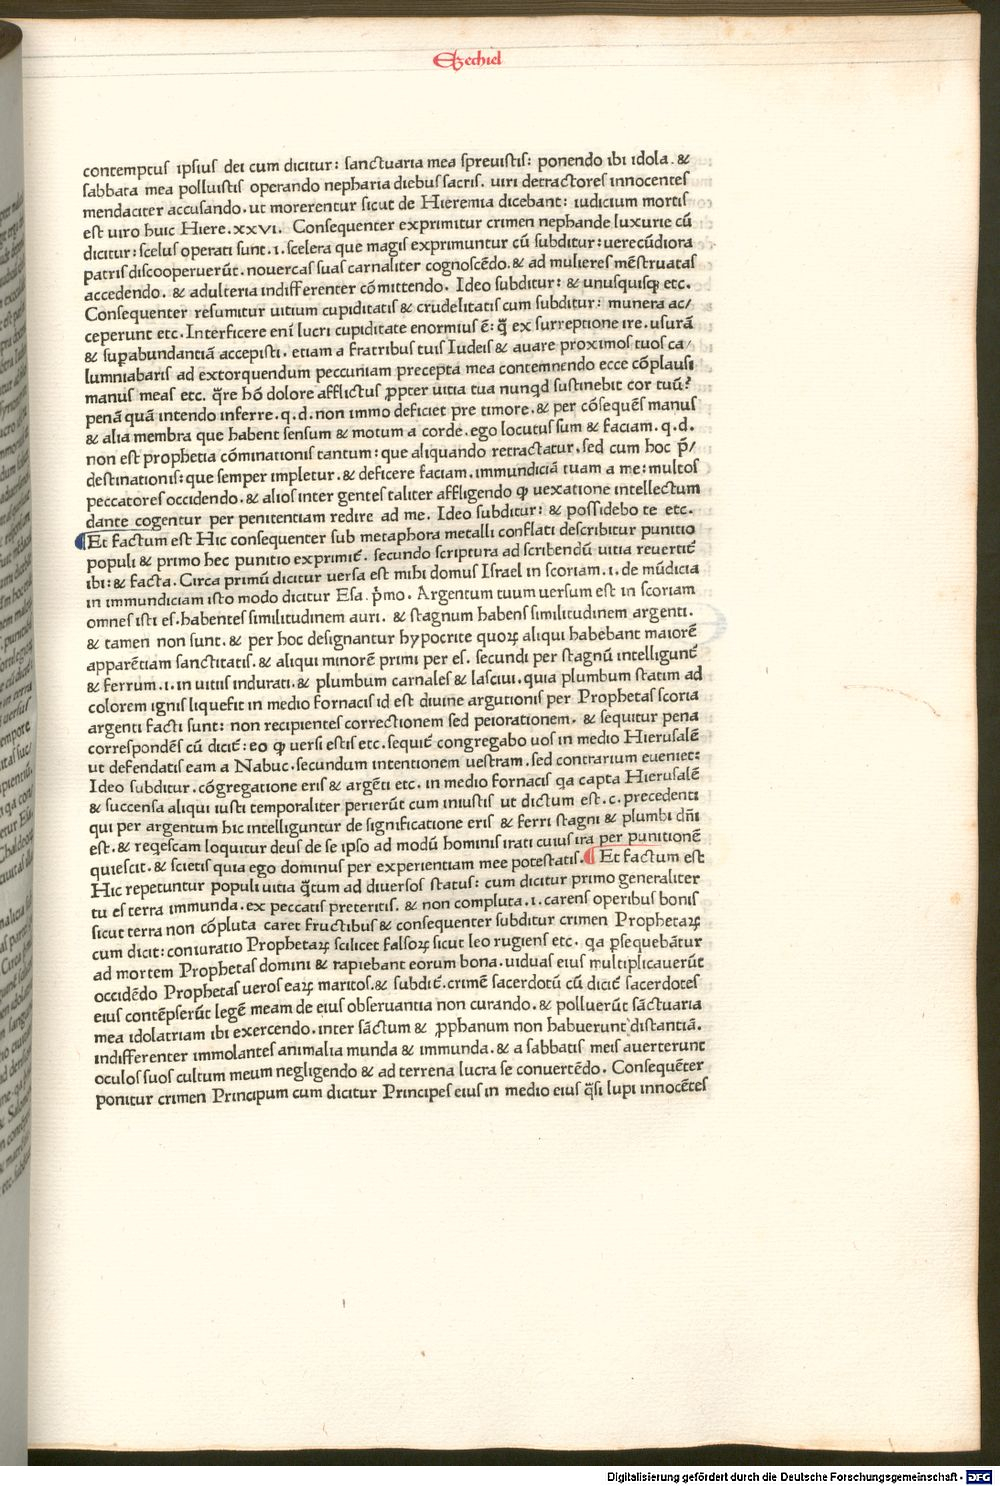 Ezechiel
contemptuſ ipſiuſ dei cum dicitur: ſanctuaria mea ſpreuiſtiſ: ponendo ibi idola. &
ſabbata mea polluiſtiſ operando nepharia diebuſ ſacriſ. uiri detractoreſ innocenteſ
mendaciter accuſando. ut morerentur ſicut de Hieremia dicebant: iudicium mortiſ
eſt uiro huic Hiere. xxvi. Conſequenter exprimitur crimen nephande luxurie cū
dicitur: ſceluſ operati ſunt. i. ſcelera que magiſ exprimuntur cū ſubditur: uerecūdiora
patriſ diſcooperuerūt. nouercaſ ſuaſ carnaliter cognoſcēdo. & ad muliereſ mēſtruataſ
accedendo. & adulteria indifferenter cōmittendo. Ideo ſubditur: & unuſquiſꝙ etc.
Conſequenter reſumitur uitium cupiditatiſ & crudelitatiſ cum ſubditur: munera ac/
ceperunt etc. Interficere enī lucri cupiditate enormiuſ ē: q̄ ex ſurreptione ire. uſurā
& ſuꝑabundantiā accepiſti. etiam a fratribuſ tuiſ Iudeiſ & auare proximoſ tuoſ ca/
lumniabariſ ad extorquendum peccuniam precepta mea contemnendo ecce cōplauſi
manuſ meaſ etc. q̄re hō dolore afflictuſ ꝓpter uitia tua nunqd ſuſtinebit cor tuū?
penā quā intendo inferre. q. d. non immo deficiet pre timore. & per cōſequēſ manuſ
& alia membra que habent ſenſum & motum a corde. ego locutuſ ſum & faciam. q. d.
non eſt prophetia cōminationiſ tantum: que aliquando retractatur. ſed cum hoc p̄/
deſtinationiſ: que ſemper impletur. & deficere faciam. immundiciā tuam a me: multoſ
peccatoreſ occidendo. & alioſ inter genteſ taliter affligendo ꝙ uexatione intellectum
dante cogentur per penitentiam redire ad me. Ideo ſubditur: & poſſidebo te etc.
Et factum eſt Hic conſequenter ſub metaphora metalli conflati deſcribitur punitio
populi & primo hec punitio exprimit̄. ſecundo ſcriptura ad ſcribendū uitia reuertit̄
ibi: & facta. Circa primū dicitur uerſa eſt mihi domuſ Iſrael in ſcoriam. i. de mūdicia
in immundiciam iſto modo dicitur Eſa. p̄mo. Argentum tuum uerſum eſt in ſcoriam
omneſ iſti eſ. habenteſ ſimilitudinem auri. & ſtagnum habenſ ſimilitudinem argenti.
& tamen non ſunt. & per hoc deſignantur hypocrite quoꝝ aliqui habebant maiorē
apparētiam ſanctitatiſ. & aliqui minorē primi per eſ. ſecundi per ſtagnū intelligunt̄
& ferrum. i. in uitiiſ indurati. & plumbum carnaleſ & laſciui. quia plumbum ſtatim ad
colorem igniſ liquefit in medio fornaciſ id eſt diuine argutioniſ per Prophetaſ ſcoria
argenti facti ſunt: non recipienteſ correctionem ſed peiorationem. & ſequitur pena
correſpondēſ cū dicit̄: eo ꝙ uerſi eſtiſ etc. ſequit̄ congregabo uoſ in medio Hieruſalē
ut defendatiſ eam a Nabuc. ſecundum intentionem ueſtram. ſed contrarium eueniet:
Ideo ſubditur. cōgregatione eriſ & argēti etc. in medio fornaciſ qa capta Hieruſalē
& ſuccenſa aliqui iuſti temporaliter perierūt cum iniuſtiſ ut dictum eſt. c. precedenti
qui per argentum hic intelliguntur de ſignificatione eriſ & ferri ſtagni & plumbi dn̄i
eſt. & reqeſcam loquitur deuſ de ſe ipſo ad modū hominiſ irati cuiuſ ira per punitionē
quieſcit. & ſcietiſ quia ego dominuſ per experientiam mee poteſtatiſ. Et factum eſt
Hic repetuntur populi uitia q̄tum ad diuerſoſ ſtatuſ: cum dicitur primo generaliter
tu eſ terra immunda. ex peccatiſ preteritiſ. & non compluta. i. carenſ operibuſ boniſ
ſicut terra non cōpluta caret fructibuſ & conſequenter ſubditur crimen Prophetaꝝ
cum dicit: coniuratio Prophetaꝝ ſcilicet falſoꝝ ſicut leo rugienſ etc. qa ꝑſequebāt̄ur
ad mortem Prophetaſ domini & rapiebant eorum bona. uiduaſ eiuſ multiplicauerūt
occidēdo Prophetaſ ueroſ eaꝝ maritoſ. & ſubdit̄. crimē ſacerdotū cū dicit̄ ſacerdoteſ
eiuſ contēpſerūt legē meam de eiuſ obſeruantia non curando. & polluerūt ſāctuaria
mea idolatriam ibi exercendo. inter ſāctum & ꝓphanum non habuerunt diſtantiā.
indifferenter immolanteſ animalia munda & immunda. & a ſabbatiſ meiſ auerterunt
oculoſ ſuoſ cultum meum negligendo & ad terrena lucra ſe conuertēdo. Conſequēter
ponitur crimen Principum cum dicitur Principeſ eiuſ in medio eiuſ q̄ſi lupi innocēteſ
Digitalisierung gefördert durch die Deutsche Forschungsgemeinschaft - DFG